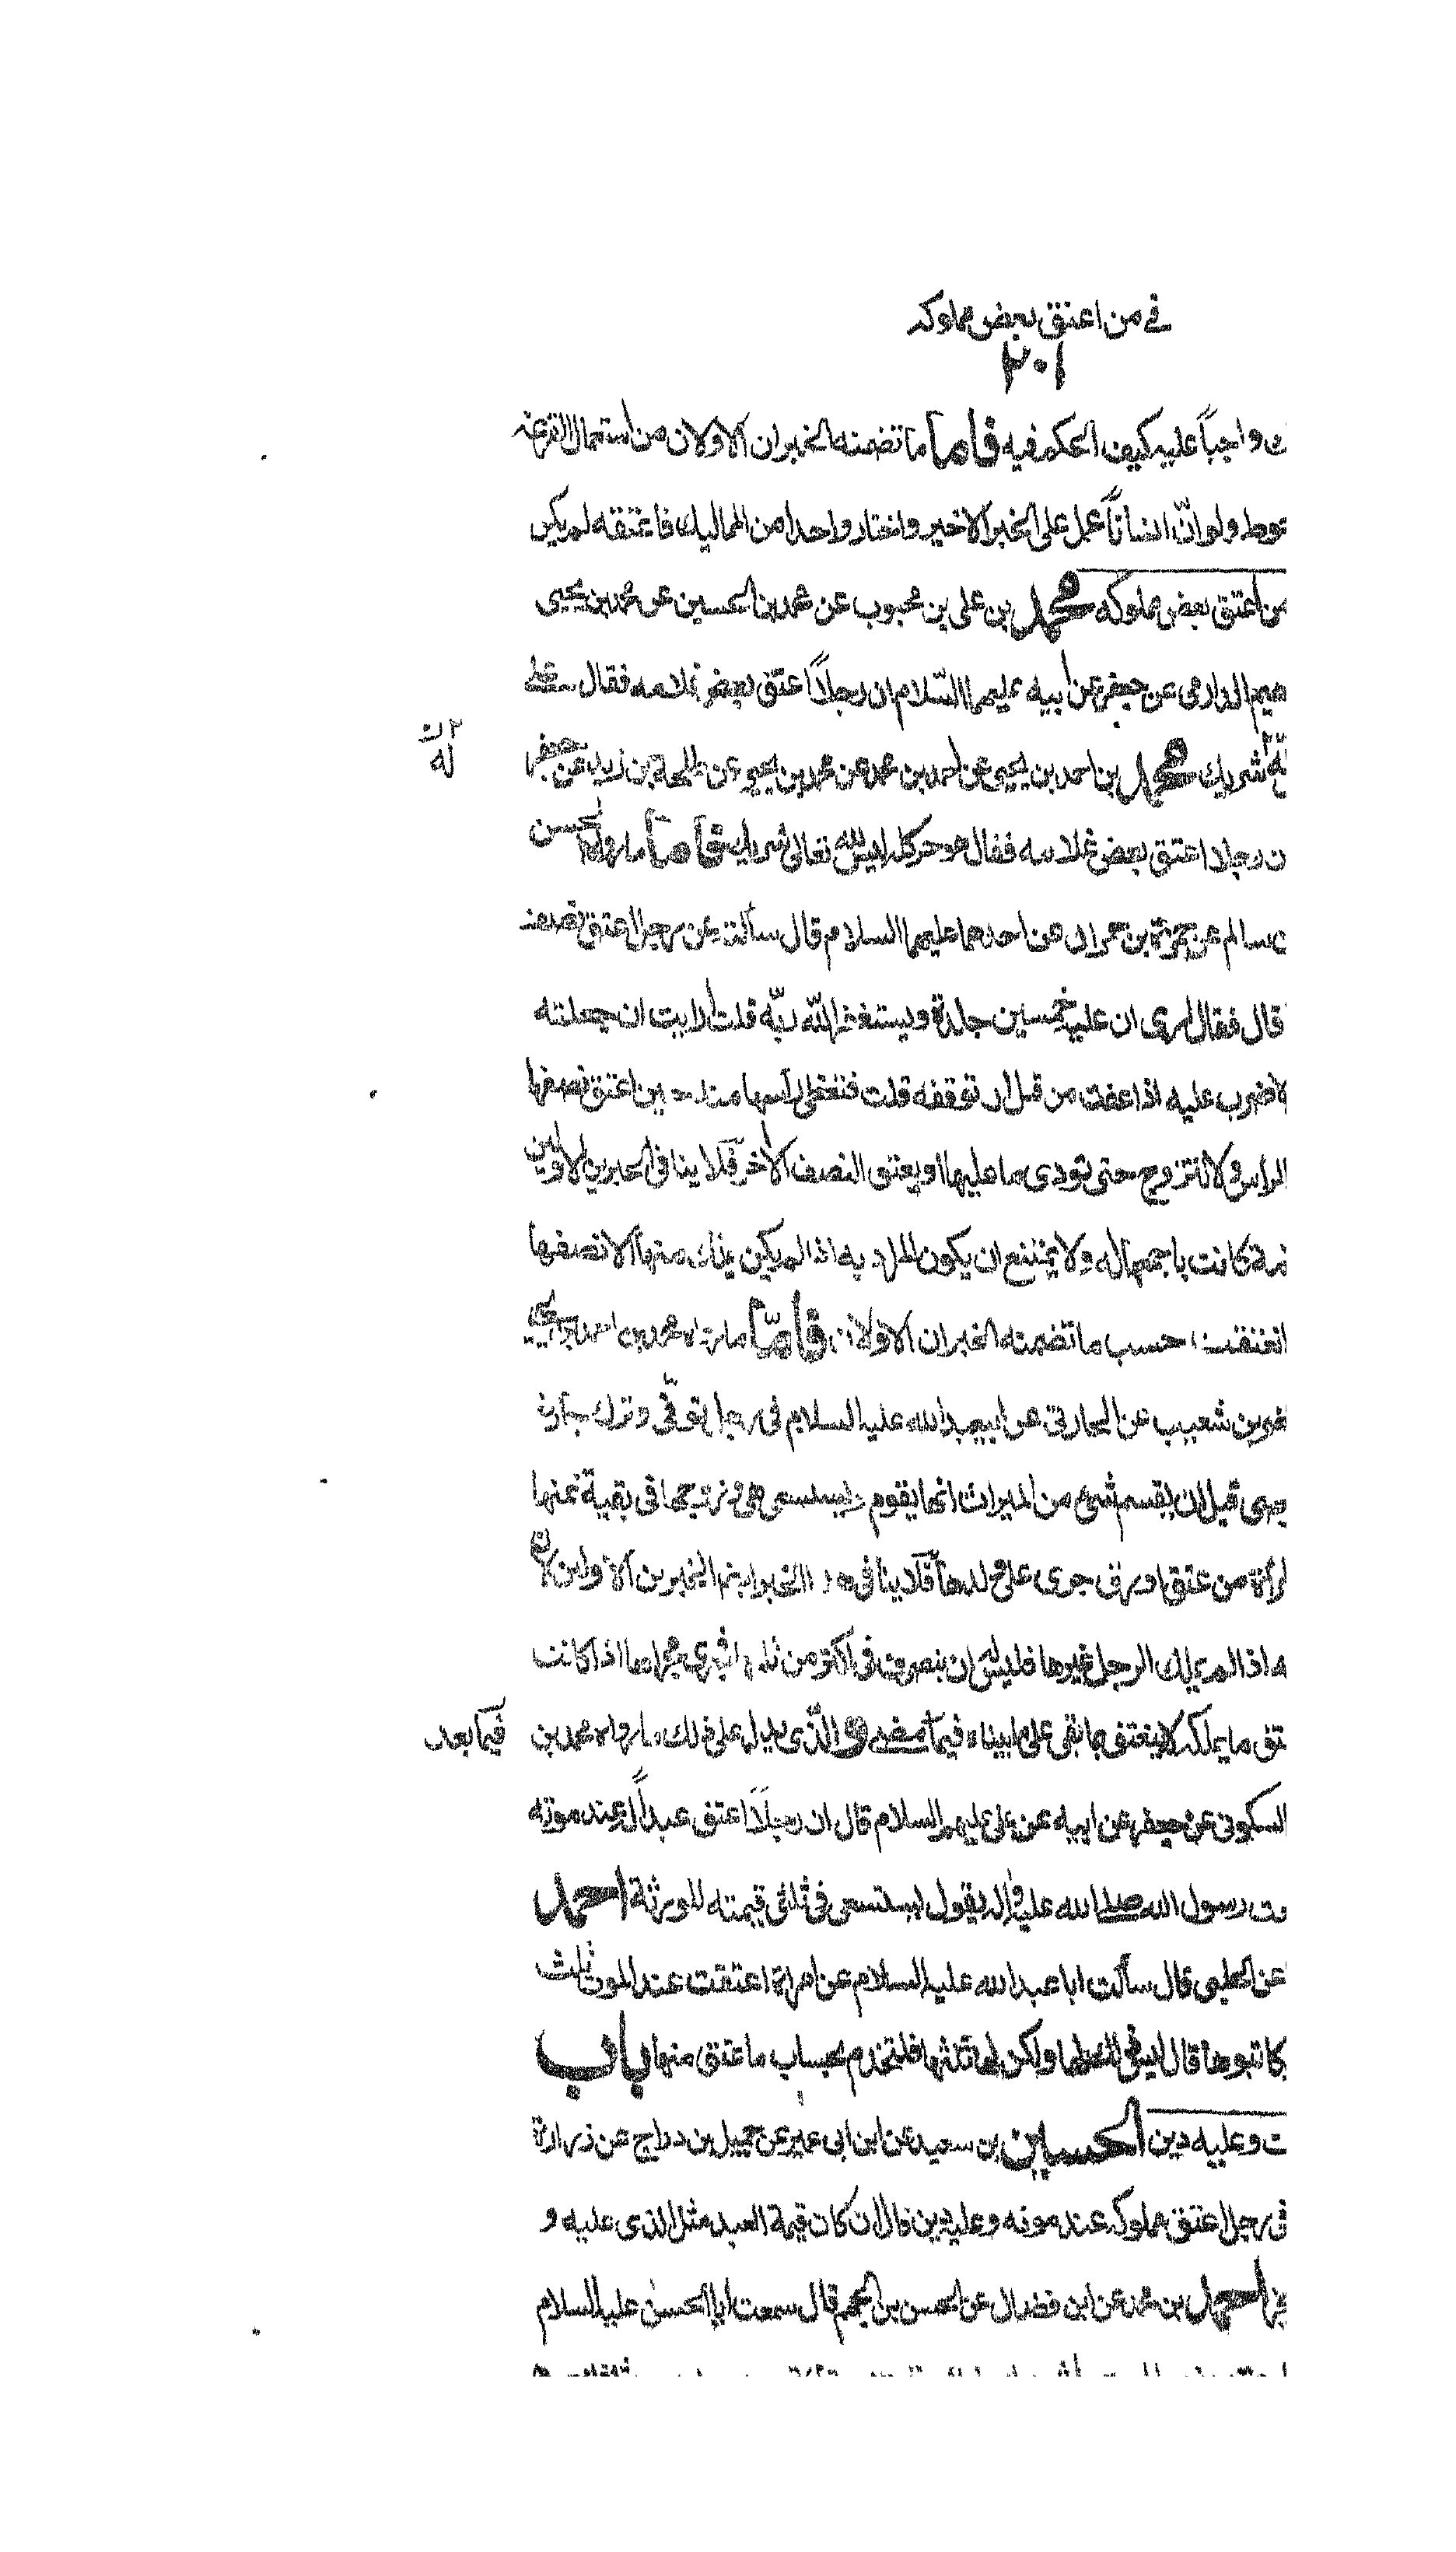 في من اعتق بعض مملوكه
٢٠١
واجباً عليه كيف الحكم فيه فأما ما تضمنه الخبران الاولان من استعمال القرعة
ولو انّ انساناً عمل على الخبر الاخير واختار واحدا من المماليك فاعتقه لم يكن
من اعتق بعض مملوكه محمد بن علي بن محبوب عن محمد بن الحسين عن محمد بن يحيى
الدارمي عن جعفر عن أبيه عليهما السلام ان رجلاً اعتق بعض غلامه فقال علي
شريك محمد بن احمد بن يحيى عن أحمد بن محمد عن محمد بن يحيى عن طلحة بن زيد عن جعفر
له
ن رجلا اعتق بعض غلامه فقال هو حر كله ليس لله تعالى شريك فأما ما رواه الحسن
سالم عن حمزة بن حمران عن احدهما عليهما السلام قال سألته عن رجل اعتق نصف
قال فقال ارى ان عليه خمسين جلدة ويستغفر الله ربّه قلت أرايت ان جعلته
لا ضرب عليه اذا عفت من قبل ان توقفه قلت فتغطى رأسها منه حين اعتق نصفها
الراس ولا تتزوج حتى تودى ما عليها او يعتق النصف الآخر فلا ينافى الخبرين الاولين
كانت باجمعها له ولا يمتنع ان يكون المراد به اذا لم يكن يملك منها الا نصفها
انعتقت حسب ما تضمنه الخبران الاولان فأمّا ما رواه محمد بن احمد بن يحيى
بن شعيب عن الحارثي عن ابي عبد الله عليه السلام في رجل توفّى وترك جارية
قبل ان يقسم شئ من الميراث انها يقوم وتستسعى هي وزوجها في بقية ثمنها
المرأة من عتق او رق جرى على ولدها فلا ينافى هذا الخبر ايضا الخبرين الاولين لان
ه اذا لم يملك الرجل غيرها فليس له ان يتصرف في أكثر من ثلثه اذا كانت
عتق ما يملكه لا ينعتق ما بقى على ما بيناه فيما مضى والّذى يدل على ذلك ما رواه محمد بن
فيما بعد
السكونى عن جعفر عن ابيه عن علي عليهم السلام قال ان رجلاً اعتق عبداً له عند موته
رسول الله صلى الله عليه واله يقول يستسعى في ثلثي قيمته للورثة احمد
عن الحلبي قال سألت ابا عبد الله عليه السلام عن امراة اعتقت عند الموت ثلث
كاتبوها قال ليس ولكن لها ثلثها فلتخدم بحساب ما عتق منها باب
ت وعليه دين الحسين بن سعيد عن ابن ابي عمير عن جميل بن دراج عن زرارة
في رجل اعتق مملوكه عند موته وعليه دين قال ان كان قيمة العبد مثل الذى عليه و
احمد بن محمد عن ابن فضال عن الحسن بن الجهم قال سمعت ابا الحسن عليه السلام